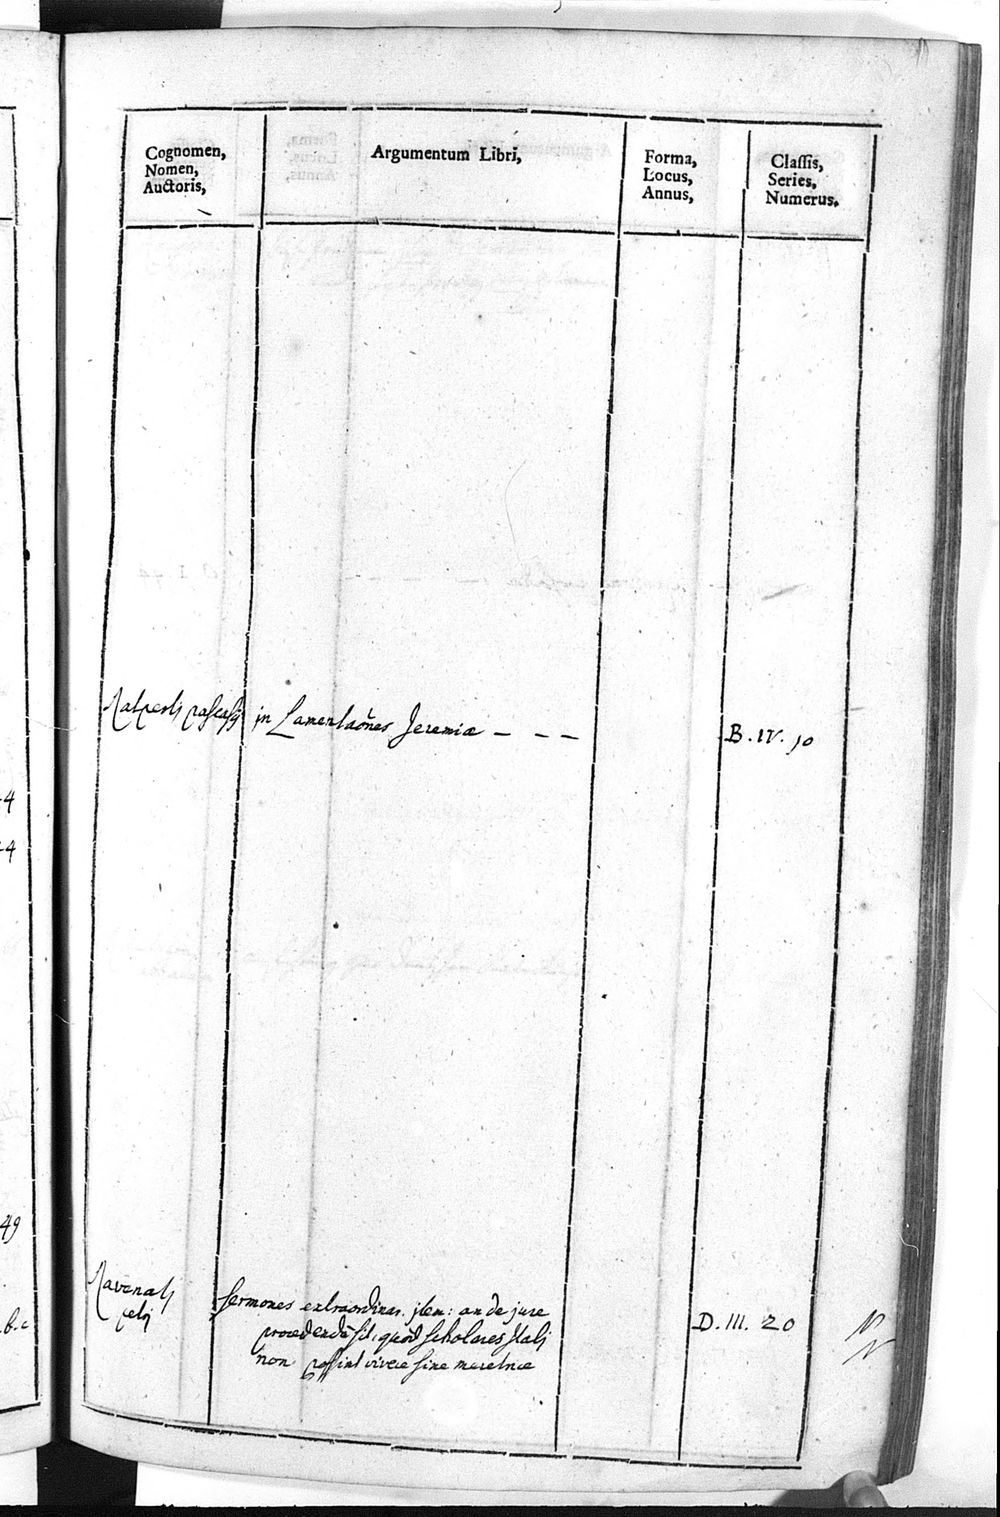 Cognomen,
Nomen,
Auctoris,
Argumentum Libri,
Forma,
Locus,
Annus,
Classis,
Series,
Numerus.
in Lamentaões Jeremiæ - - -
B. IV. 10
Ravenat
Sermones extraordinar. jtem: an de jure
procedendū sit, quod scholares Itali
non possint vivere sine meretrice
D. III. 20
-4
-4
49
.b.c